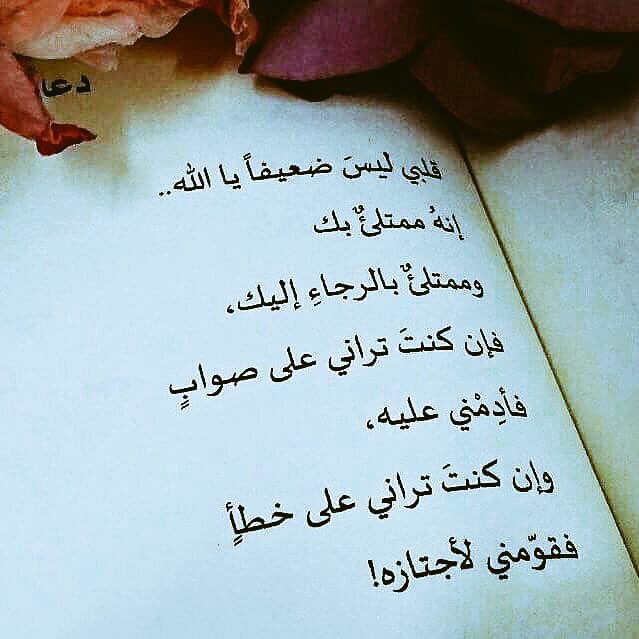 دعا
قلبي ليسَ ضعيفاً يا الله..
إنهُ ممتلئٌ بك
وممتلئٌ بالرجاءِ إليك،
فإن كنتَ تراني على صوابٍ
فأدِمْني عليه،
وإن كنتَ تراني على خطأٍ
فقوّمني لأجتازه!